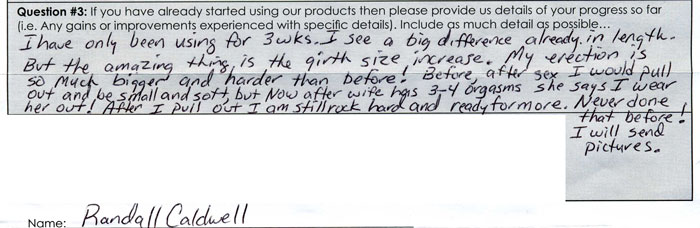 Question #3: If you have already started using our products then please provide us details of your progress so far
(i.e. Any gains or improvements experienced with specific details). Include as much detail as possible...
I have only been using for 3wks. I see a big difference already in length.
But the amazing thing is the girth size increase. My erection is
so much bigger and harder than before! Before, after sex I would pull
out and be small and soft, but Now after wife has 3-4 orgasms she says I wear
her out! After I pull out I am still rock hard and ready for more. Never done
that before!
I will send
pictures.
Name: Randall Caldwell